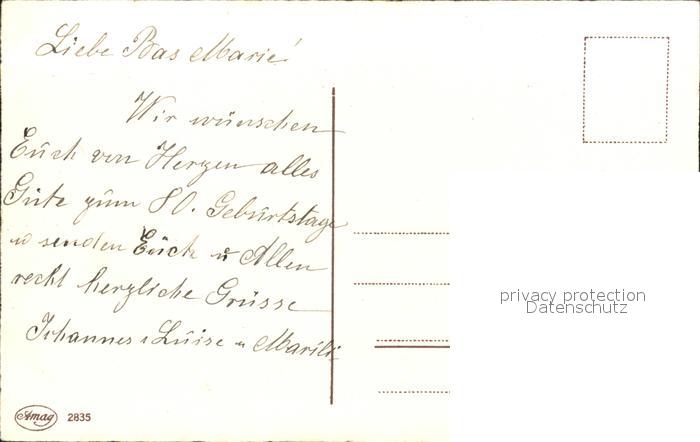 Liebe Bas Marie!
Wir wünschen
Euch von Herzen alles
Gute zum 80. Geburtstage
u senden Euch u Allen
recht herzliche Grüsse
Johannes u Luise u Marili
Amag 2835
privacy protection
Datenschutz